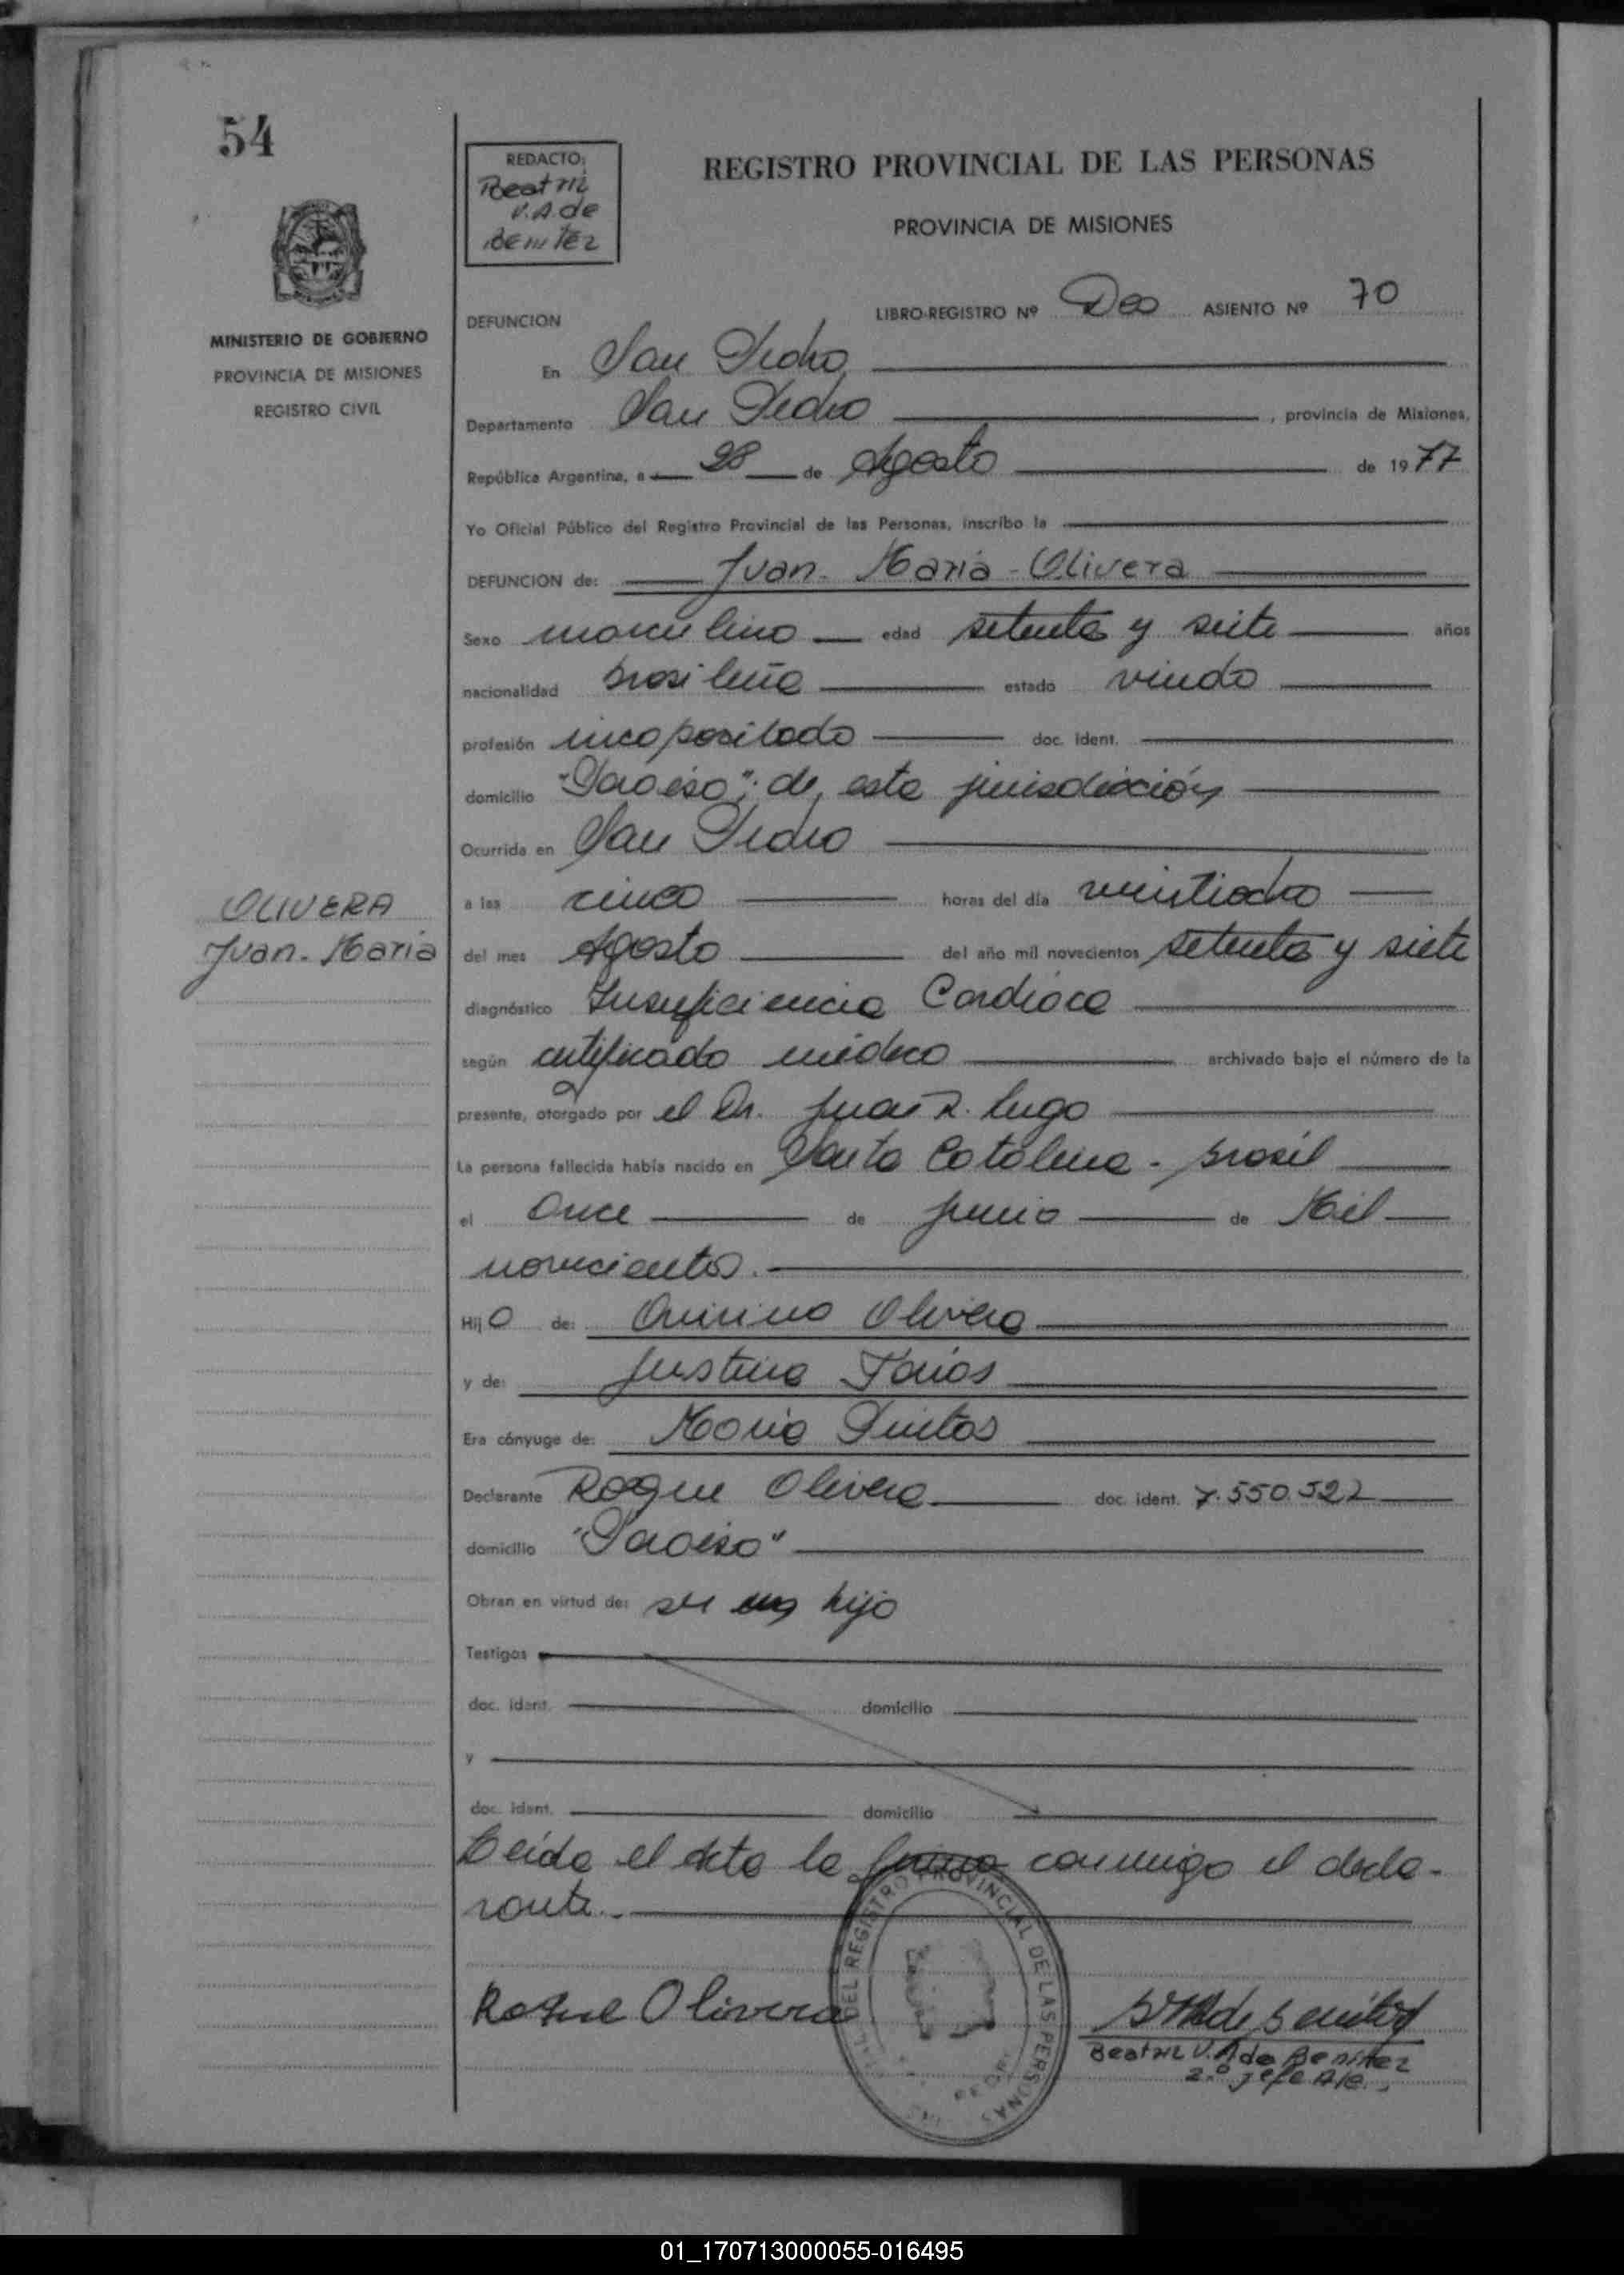 54
REDACTO:
Beatriz
V.A. de
BENITEZ
REGISTRO PROVINCIAL DE LAS PERSONAS
PROVINCIA DE MISIONES
MINISTERIO DE GOBIERNO
PROVINCIA DE MISIONES
REGISTRO CIVIL
DEFUNCION
LIBRO-REGISTRO Nº Dos ASIENTO Nº 70
En San Pedro
Departamento San Pedro, provincia de Misiones,
República Argentina, a 28 de Agosto de 1977
Yo Oficial Público del Registro Provincial de las Personas, inscribo la
DEFUNCION de: Juan - Maria - Olivera
Sexo masculino edad setenta y siete años
nacionalidad brasileña estado viudo
profesión incapacitado doc. ident.
domicilio "Paraiso"; de esta jurisdicción
Ocurrida en San Pedro
OLIVERA
Juan - Maria
a las cinco horas del día veintiocho
del mes Agosto del año mil novecientos setenta y siete
diagnóstico Insuficiencia Cardiaca
según certificado médico archivado bajo el número de la
presente, otorgado por el Dr. Juan R. Lugo
La persona fallecida había nacido en Santa Catalina - Brasil
el Once de junio de Mil
novecientos.
Hijo de: Quirino Olivera
y de: Justina Farias
Era cónyuge de: Maria
Declarante Roque Olivera doc. ident. 7.550.522
domicilio "Paraiso"
Obran en virtud de: ser un hijo
Testigos
doc. ident. domicilio
y
doc. ident. domicilio
Leída el acta la firma conmigo el decla-
rante.-
DEL REGISTRO PROVINCIAL DE LAS PERSONAS
Roque Olivera
Beatriz V. A de Benitez
2.º Jefe
01_170713000055-016495